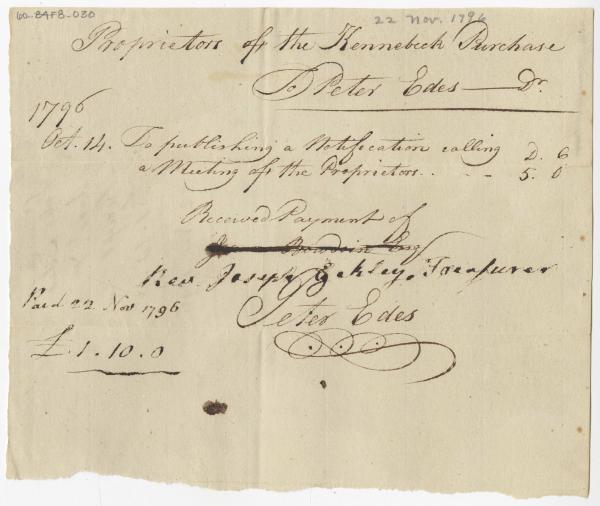 60-84F8-030
22 Nov. 1796
Proprietors of the Kennebeck Purchase
To Peter Edes — Dr.
1796
Oct. 14. To publishing a Notification calling D. 6
a Meeting of the Proprietors. . - - 5. 0
Received Payment of
Bowdoin Esq
Rev. Joseph Eckley, Treasurer
Paid 22 Nov 1796
Peter Edes
£.1.10.0